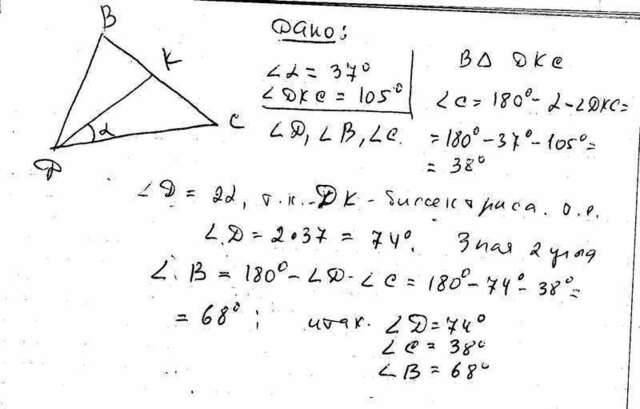 B
K
α
C
D
Дано:
∠α = 37°
∠DKC = 105°
∠D, ∠B, ∠C.
В Δ DKC
∠C = 180° - α - ∠DKC =
= 180° - 37° - 105° =
= 38°
∠D = 2α, т.к. DK - биссектриса. т.е.
∠D = 2•37 = 74°. Зная 2 угла
∠B = 180° - ∠D - ∠C = 180° - 74° - 38° =
= 68° ; итак. ∠D = 74°
∠C = 38°
∠B = 68°